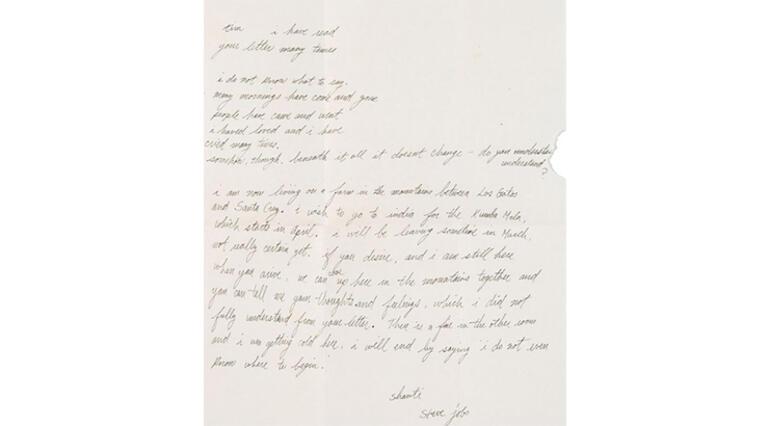 tim i have read
your letter many times
i do not know what to say.
many mornings have come and gone
people have came and went
i haved loved and i have
cried many times.
somehow, though, beneath it all it doesnt change – do you understand
understand?
i am now living on a farm in the mountains between Los Gatos
and Santa Cruz. i wish to go to india for the Kumba Mela,
which starts in April. i will be leaving sometime in March,
not really certain yet. if you desire, and i am still here
when you arive, we can be up here in the mountains together and
you can tell me your thoughts and feelings, which i did not
fully understand from your letter. There is a fire in the other room
and i am getting cold here. i will end by saying i do not even
know where to begin.
shanti
steve jobs